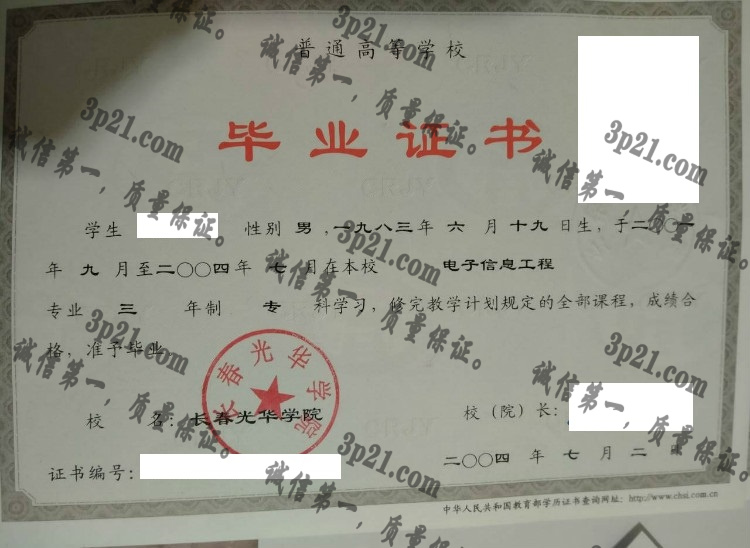 普通高等学校
毕业证书
学生 性别 男 ,一九八三年 六 月 十九 日生, 于二〇〇一
年 九 月至二〇〇四年 七 月在本校 电子信息工程
专业 三 年制 专 科学习, 修完教学计划规定的全部课程, 成绩合
格, 准予毕业
长春光华学院
校 名: 长春光华学院
校(院)长:
证书编号:
二〇〇四 年 七 月 二
中华人民共和国教育部学历证书查询网址: http://www.chsi.com.cn
3p21.com
诚信第一,质量保证。
3p21.com
诚信第一,质量保证。
3p21.com
诚信第一,质量保证。
3p21.com
诚信第一,质量保证。
3p21.com
诚信第一,质量保证。
3p21.com
诚信第一,质量保证。
3p21.com
诚信第一,质量保证。
3p21.com
诚信第一,质量保证。